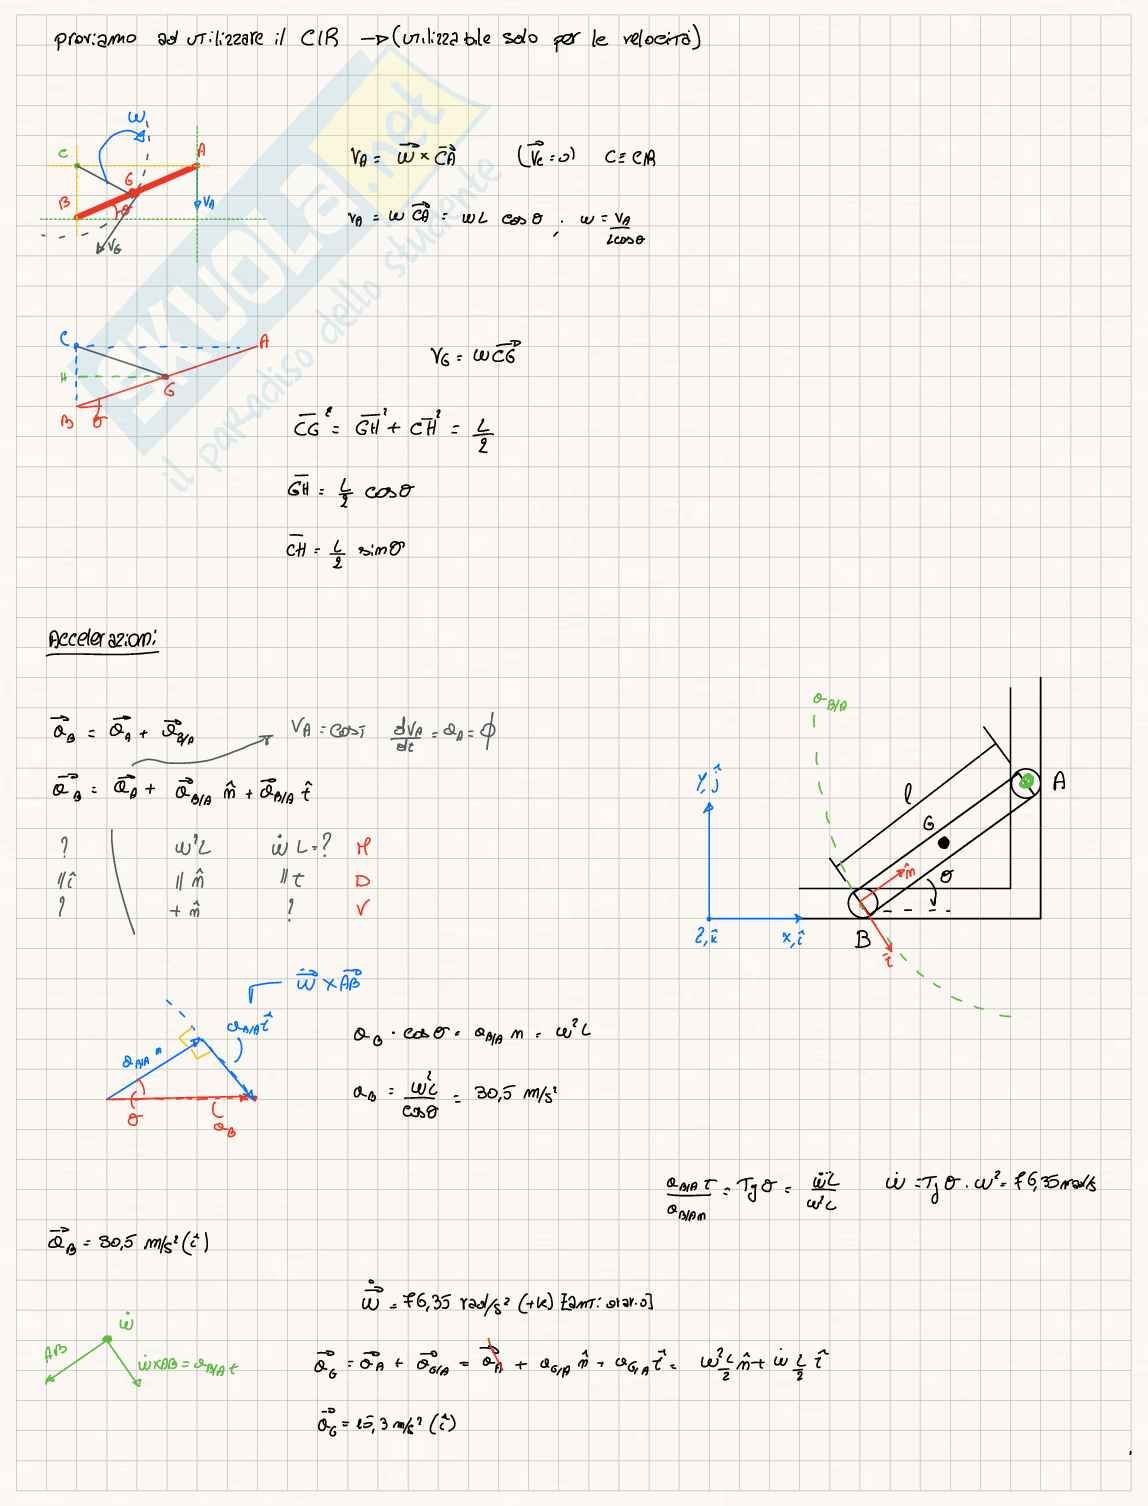 proviamo ad utilizzare il CIR → (utilizzabile solo per le velocità)
ω
C
A
G
B
θ
V_A
V_G
V_A = ω⃗ × C⃗A (V⃗_C = 0) C ≡ CIR
V_A = ω C̅A̅ = ωL cosθ ; ω = V_A / Lcosθ
C
A
H
G
B
θ
V_G = ω C̅G̅
C̅G̅² = G̅H̅² + C̅H̅² = L/2
G̅H̅ = L/2 cosθ
C̅H̅ = L/2 sinθ
SKUOLA.net
il paradiso dello studente
Accelerazioni
a⃗_B = a⃗_A + a⃗_B/A
V_A = cost dV_A/dt = a_A = ϕ
a⃗_B = a⃗_A + a⃗_B/A n̂ + a⃗_B/A t̂
? ω²L ω̇L = ? M
// î // n̂ // t D
? + n̂ ? V
a_B/A
l
A
G
y, ĵ
n̂
θ
z, k̂
x, î
B
t̂
ω̇⃗ × A⃗B
a_B/A t̂
a_B/A n
θ
a_B
a_B · cosθ = a_B/A n = ω²L
a_B = ω²L / cosθ = 30,5 m/s²
a_B/A t / a_B/A n = Tgθ = ω̇L / ω²L ω̇ = Tgθ · ω² = 76,35 rad/s
a⃗_B = 30,5 m/s² (î)
ω̇⃗ = 76,35 rad/s² (+k) [antiorario]
ω̇
AB
ω̇×AB = a_B/A t
a⃗_G = a⃗_A + a⃗_G/A = a⃗_A + a_G/A n̂ + a_G/A t̂ = ω² L/2 n̂ + ω̇ L/2 t̂
a⃗_G = 15,3 m/s² (î)